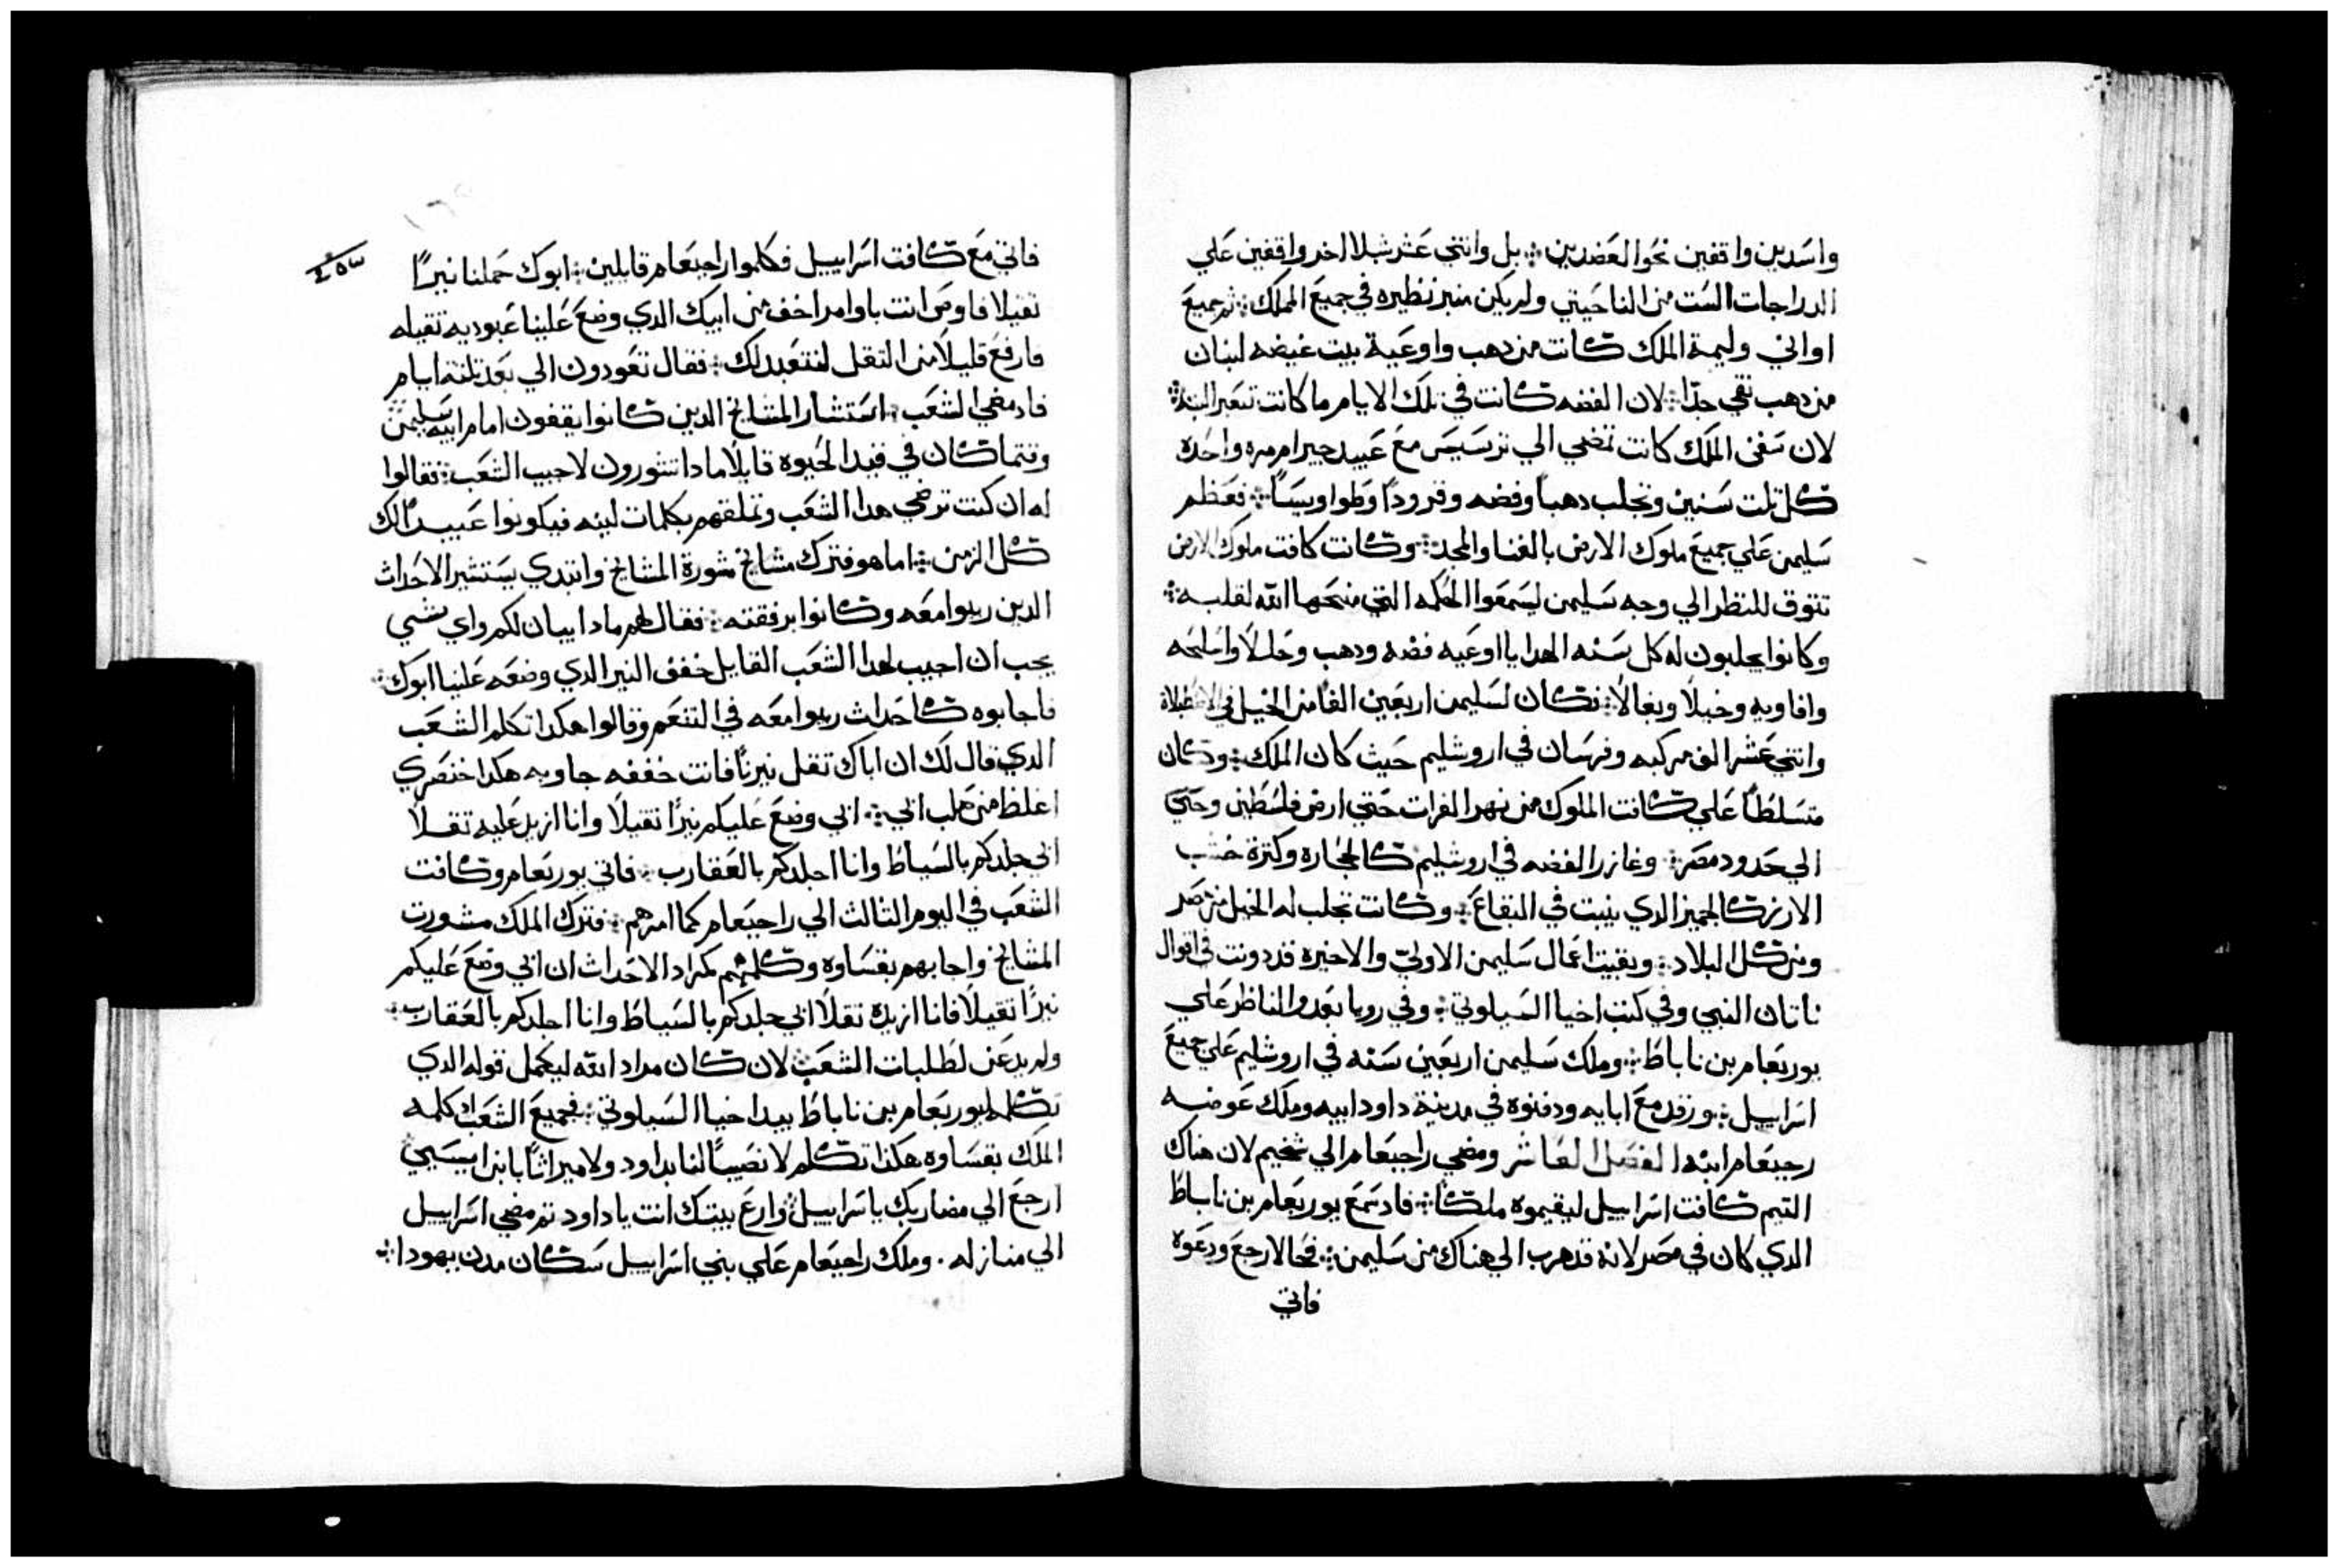 واسدين واقفين نحو العضدين ܀ بل واتني عشر شبلا اخر واقفين علي
الدراجات الست من الناحيتي ولم يكن منبر نظيره في جميع الممالك ܀ ثم جميع
اواني وليمة الملك كانت من دهب واوعية بيت غيضه لبنان
من دهب نقي جدًا ܀ لان الفضه كانت في تلك الايام ما كانت تتعبر البته ܀
لان سفن الملك كانت تمضي الي ترسيس مع عبيد حيرام مره واحده
كل تلت سنين وتجلب دهباً وفضه وقرودًا وطواويسًا ܀ فعظم
سليمن علي جميع ملوك الارض بالغنا والمجد ܀ وكانت كافت ملوك الارض
تتوق للنظر الي وجه سليمن ليسمعوا الحكمه التي منحها الله لقلبه ܀
وكانوا يجلبون له كل سنه الهدايا اوعيه فضه ودهب وحللًا واسلحه
وافاويه وخيلًا وبغالًا ܀ فكان لسليمن اربعين الفًا من الخيل في الاصطبلاة
واتني عشر الف مركبه وفرسان في اروشليم حيث كان الملك ܀ وكان
متسلطًا علي كافت الملوك من نهر الفرات حتي ارض فلسطين وحتي
الي حدود مصر ܀ وغازر الفضه في اروشليم كالحجاره وكترة خشب
الارز كالجميز الدي ينبت في البقاع ܀ وكانت تجلب له الخيل من مصر
ومن كل البلاد ܀ وبقيت اعمال سليمن الاولي والاخيره قد دونت في اقوال
ناتان النبي وفي كتب اخيا السيلوني ܀ وفي رويا يعدو الناظر علي
يوربعام بن ناباط ܀ وملك سليمن اربعين سنه في اروشليم علي جميع
اسراييل ܀ ورقد مع ابايه ودفنوه في مدينة داود ابيه وملك عوضه
رحبعام ابنه الفصل العاشر ومضي راحبعام الي شخيم لان هناك
التيم كافت اسراييل ليقيموه ملكًا ܀ فاد سمع يوربعام بن ناباط
الدي كان في مصر لانه قد هرب الي هناك من سليمن ܀ فحالا رجع ودعوه
فاتي
٤٥٣
فاتي مع كافت اسراييل فكلموا راحبعام قايلين ܀ ابوك حملنا نيرًا
تقيلًا فاوص انت باوامر اخف من ابيك الدي وضع علينا عبوديه تقيله
فارفع قليلًا من التقل لنتعبد لك ܀ فقال تعودون الي بعد تلتة ايام
فاد مضي الشعب ܀ استشار المشايخ الدين كانوا يقفون امام ابيه سليمن
وقتما كان في قيد الحيوه قايلًا مادا تشورون لاجيب الشعب ܀ فقالوا
له ان كنت ترضي هدا الشعب وتملقهم بكلمات لينه فيكونوا عبيدًا لك
كل الزمن ܀ اما هو فترك مشايخ مشورة المشايخ وابتدي يستشير الاحداث
الدين ربيوا معه وكانوا برفقته ܀ فقال لهم مادا يبان لكم واي شي
يجب ان اجيب لهدا الشعب القايل خفف النير الدي وضعه علينا ابوك ܀
فاجابوه كاحداث ربيوا معه في التنعم وقالوا هكدا تكلم الشعب
الدي قال لك ان اباك تقل نيرنًا فانت خففه جاوبه هكدا خنصري
اغلظ من صلب ابي ܀ ابي وضع عليكم نيرًا تقيلًا وانا ازيد عليه تقلًا
ابي جلدكم بالسياط وانا اجلدكم بالعقارب ܀ فاتي يوربعام وكافت
الشعب في اليوم التالت الي راحبعام كما امرهم ܀ فترك الملك مشورت
المشايخ واجابهم بقساوه وكلمهم كمراد الاحداث ان ابي وضع عليكم
نيرًا تقيلًا فانا ازيده تقلًا ابي جلدكم بالسياط وانا اجلدكم بالعقارب ܀
ولم يدعن لطلبات الشعب لان كان مراد الله ليكمل قوله الدي
تكلمه ليوربعام بن ناباط بيد اخيا السيلوني ܀ فجميع الشعب كلمه
الملك بقساوه هكدا تكلم لا نصيبًا لنا بداود ولا ميراتًا بابن ايسي
ارجع الي مضاربك يا سراييل وارع بيتك انت يا داود تم مضي اسراييل
الي منازله . وملك راحبعام علي بني اسراييل سكان مدن يهودا ܀